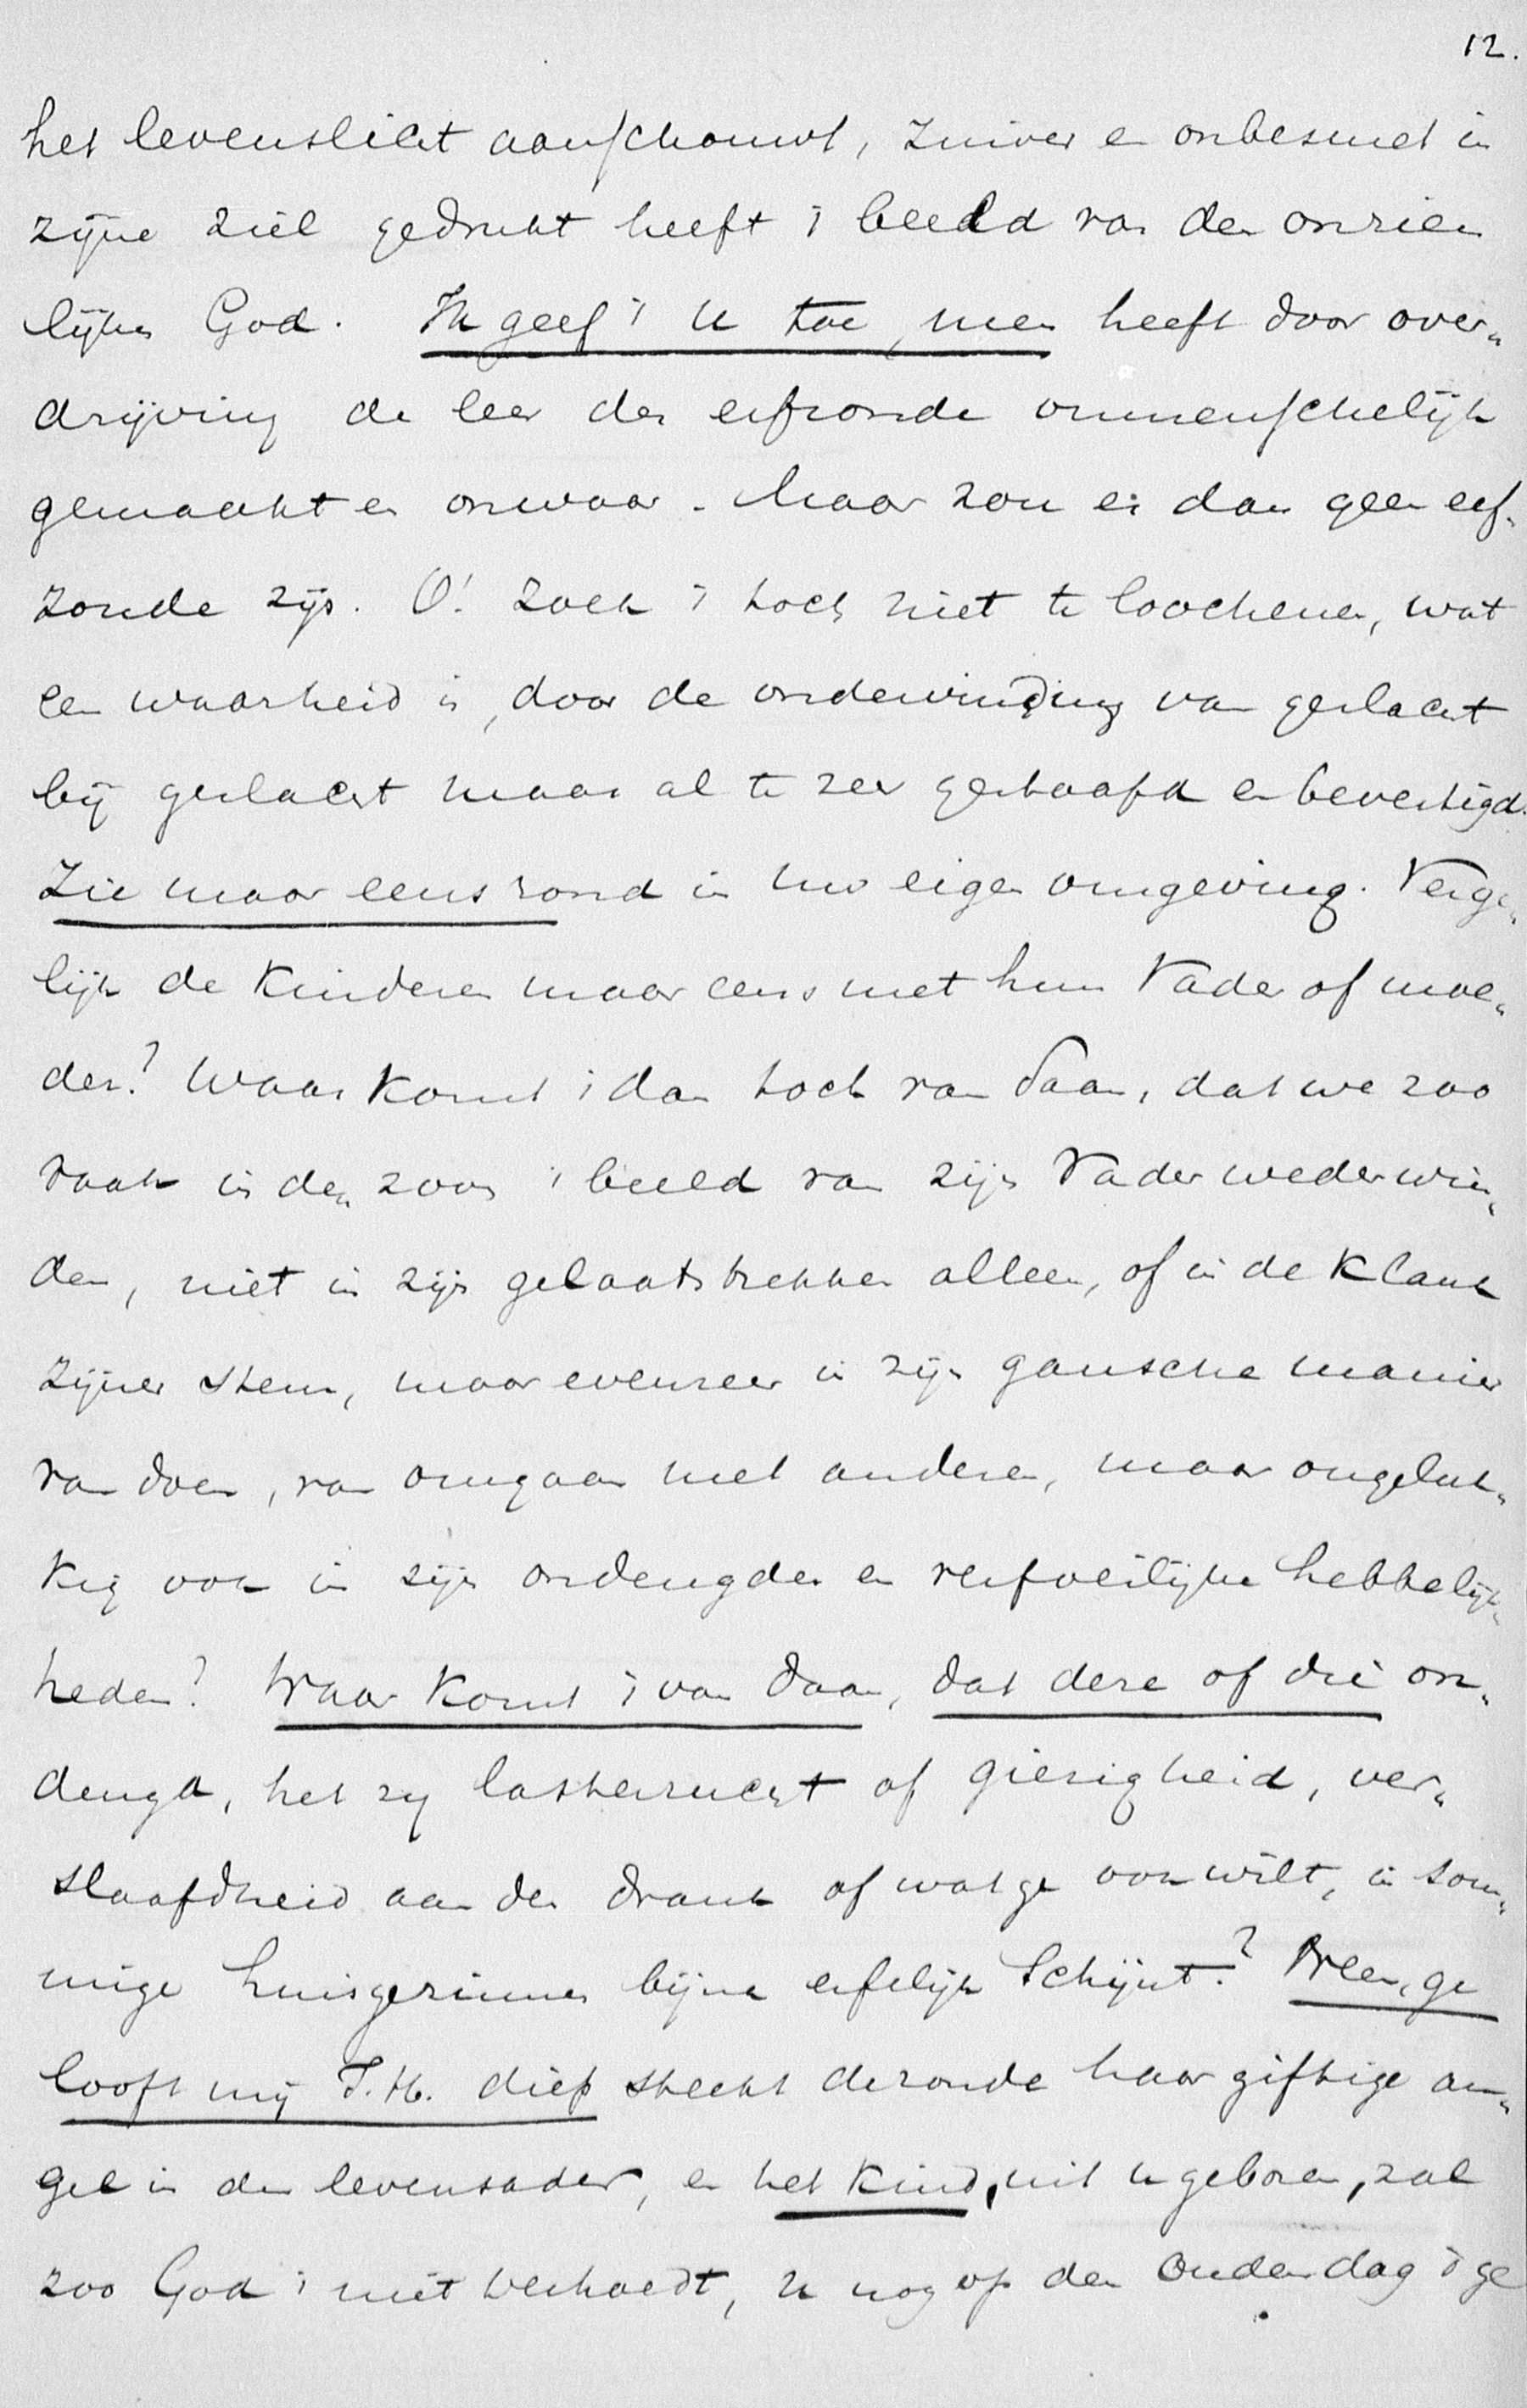 12.
het levenslicht aanschouwt, zuiver en onbesmet in
zijne ziel gedrukt heeft 't beeld van den onzien
lijken God. Ik geef 't u toe, men heeft door over„
drijving de leer der erfzonde onmenschelijk
gemaakt en onwaar. Maar zou er dan geen erf„
zonde zijn. O! zoek 't toch niet te loochenen, wat
een waarheid is, door de ondervinding van geslacht
bij geslacht maar al te zeer gestaafd en bevestigd.
Zie maar eens rond in uw eigen omgeving. Verge„
lijk de kinderen maar eens met hun Vader of moe„
der? Waar komt 't dan toch van daan, dat we zoo
vaak in den zoon 't beeld van zijn Vader wedervin„
den, niet in zijn gelaatstrekken alleen, of in de klank
zijner stem, maar evenzeer in zijn gansche manier
van doen, van omgaan met anderen, maar ongeluk„
kig ook in zijn ondeugden en verfoeilijke hebbelijk„
heden? Waar komt 't van daan, dat deze of die on„
deugd, het zij lasterzucht of gierigheid, ver„
slaafdheid aan den drank of wat ge ook wilt, in som„
mige huisgezinnen bijna erfelijk schijnt? Neen, ge
looft mij T.H. diep steekt de zonde haar giftige an„
gel in den levensader, en het kind, uit u geboren, zal
zoo God 't niet verhoedt, u nog op den ouden dag 't ge